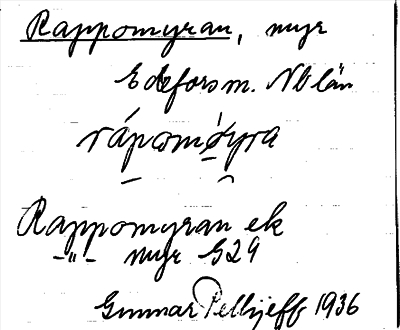 Rappomyran, myr
Edefors m. Nb län
rápomýra
Rappomyran ek
-"- myr G29
Gunnar Pellijeff 1936